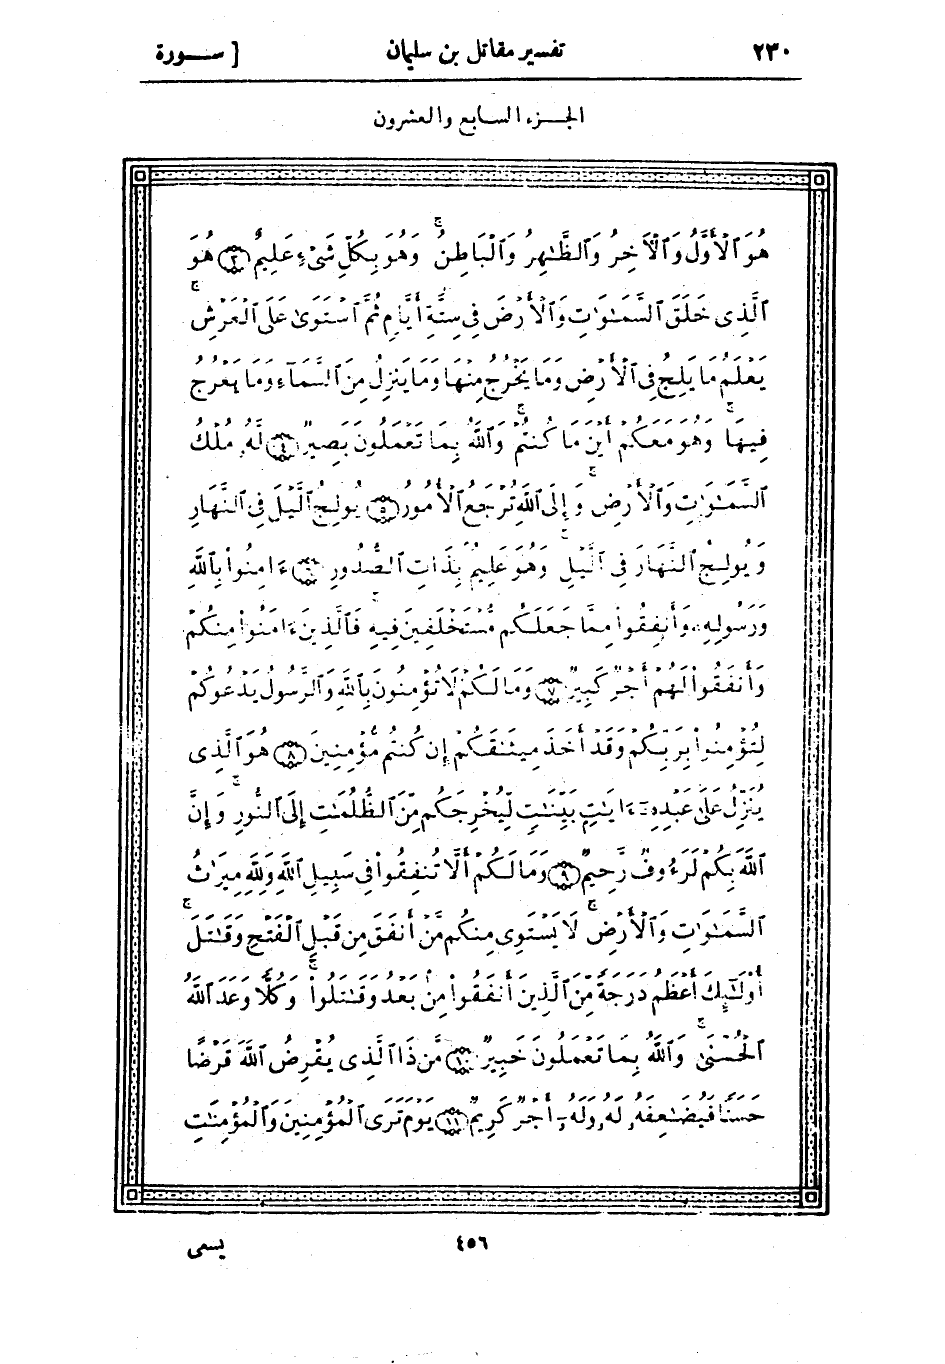 ٢٣٠ تفسير مقاتل بن سليمان [ ســورة
الجــزء السابع والعشرون
هُوَ ٱلْأَوَّلُ وَٱلْآخِرُ وَٱلظَّٰهِرُ وَٱلْبَاطِنُ ۖ وَهُوَ بِكُلِّ شَىْءٍ عَلِيمٌ ﴿٣﴾ هُوَ
ٱلَّذِى خَلَقَ ٱلسَّمَٰوَٰتِ وَٱلْأَرْضَ فِى سِتَّةِ أَيَّامٍ ثُمَّ ٱسْتَوَىٰ عَلَى ٱلْعَرْشِ ۚ
يَعْلَمُ مَا يَلِجُ فِى ٱلْأَرْضِ وَمَا يَخْرُجُ مِنْهَا وَمَا يَنزِلُ مِنَ ٱلسَّمَآءِ وَمَا يَعْرُجُ
فِيهَا ۖ وَهُوَ مَعَكُمْ أَيْنَ مَا كُنتُمْ ۚ وَٱللَّهُ بِمَا تَعْمَلُونَ بَصِيرٌ ﴿٤﴾ لَّهُۥ مُلْكُ
ٱلسَّمَٰوَٰتِ وَٱلْأَرْضِ ۚ وَإِلَى ٱللَّهِ تُرْجَعُ ٱلْأُمُورُ ﴿٥﴾ يُولِجُ ٱلَّيْلَ فِى ٱلنَّهَارِ
وَيُولِجُ ٱلنَّهَارَ فِى ٱلَّيْلِ ۚ وَهُوَ عَلِيمٌۢ بِذَاتِ ٱلصُّدُورِ ﴿٦﴾ ءَامِنُوا۟ بِٱللَّهِ
وَرَسُولِهِۦ وَأَنفِقُوا۟ مِمَّا جَعَلَكُم مُّسْتَخْلَفِينَ فِيهِ ۖ فَٱلَّذِينَ ءَامَنُوا۟ مِنكُمْ
وَأَنفَقُوا۟ لَهُمْ أَجْرٌ كَبِيرٌ ﴿٧﴾ وَمَا لَكُمْ لَا تُؤْمِنُونَ بِٱللَّهِ وَٱلرَّسُولُ يَدْعُوكُمْ
لِتُؤْمِنُوا۟ بِرَبِّكُمْ وَقَدْ أَخَذَ مِيثَٰقَكُمْ إِن كُنتُم مُّؤْمِنِينَ ﴿٨﴾ هُوَ ٱلَّذِى
يُنَزِّلُ عَلَىٰ عَبْدِهِۦٓ ءَايَٰتٍۭ بَيِّنَٰتٍ لِّيُخْرِجَكُم مِّنَ ٱلظُّلُمَٰتِ إِلَى ٱلنُّورِ ۚ وَإِنَّ
ٱللَّهَ بِكُمْ لَرَءُوفٌ رَّحِيمٌ ﴿٩﴾ وَمَا لَكُمْ أَلَّا تُنفِقُوا۟ فِى سَبِيلِ ٱللَّهِ وَلِلَّهِ مِيرَٰثُ
ٱلسَّمَٰوَٰتِ وَٱلْأَرْضِ ۚ لَا يَسْتَوِى مِنكُم مَّنْ أَنفَقَ مِن قَبْلِ ٱلْفَتْحِ وَقَٰتَلَ ۚ
أُو۟لَٰٓئِكَ أَعْظَمُ دَرَجَةً مِّنَ ٱلَّذِينَ أَنفَقُوا۟ مِنۢ بَعْدُ وَقَٰتَلُوا۟ ۚ وَكُلًّا وَعَدَ ٱللَّهُ
ٱلْحُسْنَىٰ ۚ وَٱللَّهُ بِمَا تَعْمَلُونَ خَبِيرٌ ﴿١٠﴾ مَّن ذَا ٱلَّذِى يُقْرِضُ ٱللَّهَ قَرْضًا
حَسَنًا فَيُضَٰعِفَهُۥ لَهُۥ وَلَهُۥٓ أَجْرٌ كَرِيمٌ ﴿١١﴾ يَوْمَ تَرَى ٱلْمُؤْمِنِينَ وَٱلْمُؤْمِنَٰتِ
٤٥٦ يسمى